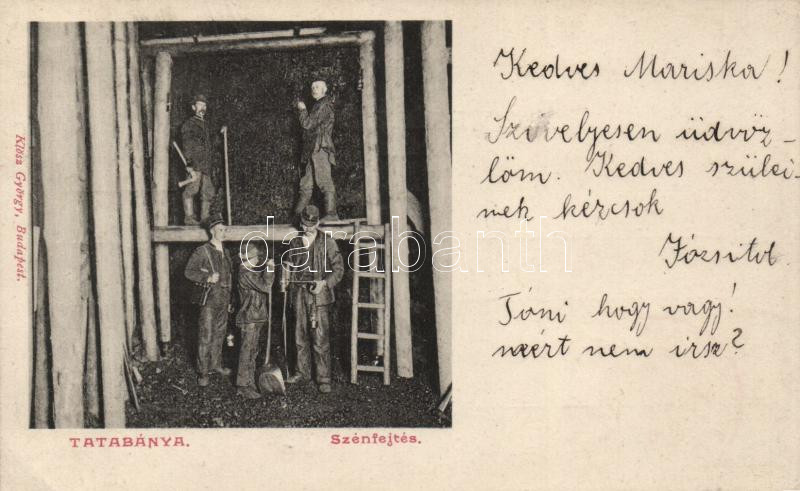 Klösz György, Budapest.
TATABÁNYA.
Szénfejtés.
Kedves Mariska!
Szivélyesen üdvöz-
löm. Kedves szülei-
nek kézcsok
Józsitól.
Tóni hogy vagy!
mért nem irsz?
darabanth